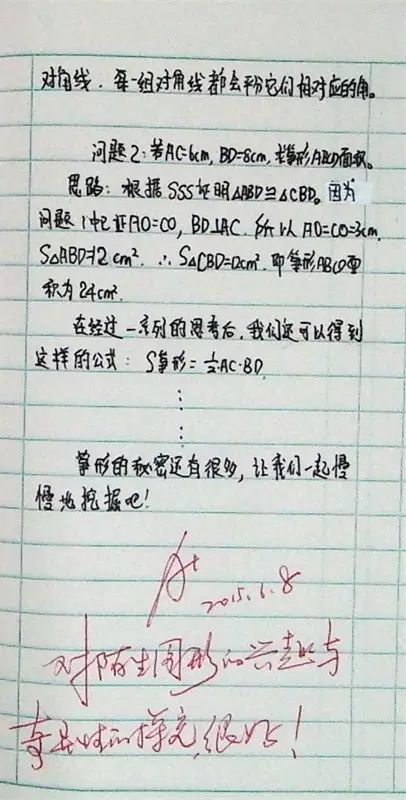 对角线，每一组对角线都会平份它们相对应的角。
问题2：若AC=6cm，BD=8cm，求筝形ABCD面积。
思路：根据SSS证明△ABD≌△CBD。因为
问题1中已证AO=CO，BD⊥AC．所以AO=CO=3cm．
S△ABD=12cm²．∴S△CBD=12cm²．即筝形ABCD面
积为24cm²．
在经过一系列的思考后，我们还可以得到
这样的公式：S筝形=½·AC·BD．
⋮
筝形的秘密还有很多，让我们一起慢
慢地挖掘吧！
A+
2015.6.8
对陌生图形的兴趣与
探究，很好！